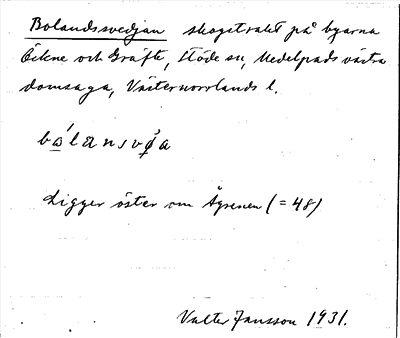 Bolandssvedjan skogstrakt på byarna
Öckne och Gräfte, Stöde sn, Medelpads västra
domsaga, Västernorrlands l.
Ligger öster om Åsrenen (= 48)
Valter Jansson 1931.